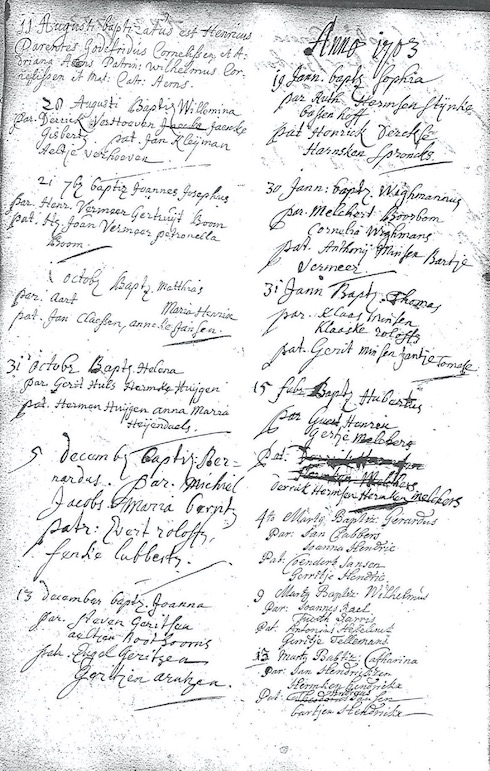 11 Augusti baptizatus est Henricus
Parentes Godefridus Cornelissen, et A-
driana Aerns Patrini Wilhelmus Cor-
nelissen et Mat: Cat: Aerns.
20 Augusti Baptiz Willemina
par. Derrick Verstoeven Jacoba Jaenke
Gisberz pat. Jan Kleijman
Aeltje verhoeven
21 7br baptz Joannes Josephus
par. Henr. Vermeer Gertruijt Boom
pat. Hr Joan Vermeer petronella
Boom.
1 octobr Baptz Matthias
par. Aart Maria Henrix
pat. Jan Claessen, anneke Jansen
31 octobr Baptz Helena
par Gerit Huls Hermske Huijgen
pat. Hermen Huijgen anna Maria
Heijendaels.
5 decemb baptiz Ber-
nardus. par. Michiel
Jacobs Maria berntz
patr: Evert roloffs
fenke lubberts.
13 december baptz Joanna
par. Steven Geritsen
aeltien
pat. Engel Geritsen
Geritjen arntzen.
Anno 1703
19 Jann. baptz Sophia
par Ruth Hermsen Stijnke
bossenhoff
pat Henrick Dercksen
Harnsken Sproncks.
30 Jann: baptz Wighmannus
par. Melchert Boorbom
Cornelia Wighmans
pat. Anthonij Minsen Bartje
Vermeer
31 Jann Baptz Thomas
par. Klaas minsen
Klaaske roloffs
pat. Gerit minsen Jantje Tomasse
15 febr Baptz Hubertus
par Guert Henren
Gertje Melchers
pat:
derrick Hermsen Herneken Melchers
4to Marty Baptz: Gerardus
Par: Jan Clabbers
Joanna Hendric
Pat: Coendert Jansen
Gerritje Hendric
9 Marty Baptiz: Wilhelmus
Par: Joannes Kael
Judith Harris
Pat: Antonius
Gerritje Tellemans
13 Marty Baptiz: Catharina
Par: Jan Hendricksen
Hermken Hendrickx
Pat:
bartjen Hendrickx